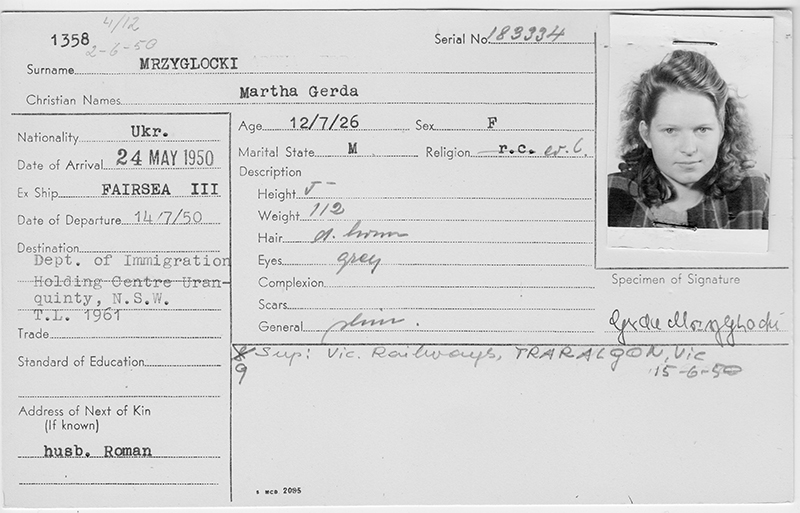 4/12
1358
2-6-50
Serial No. 183334
Surname MRZYGLOCKI
Christian Names Martha Gerda
Nationality Ukr.
Date of Arrival 24 MAY 1950
Ex Ship FAIRSEA III
Date of Departure 14/7/50
Destination
Dept. of Immigration
Holding Centre Uran-
quinty, N.S.W.
T.L. 1961
Trade
Standard of Education
Address of Next of Kin
(If known)
husb. Roman
Age 12/7/26 Sex F
Marital State M Religion r.c. ev. C.
Description
Height 5-
Weight 112
Hair d. brown
Eyes grey
Complexion
Scars
General slim.
Specimen of Signature
Gerda Mrzyglocki
8/9 Sup: Vic. Railways, TRARALGON, Vic
15-6-50
S MCD 2095